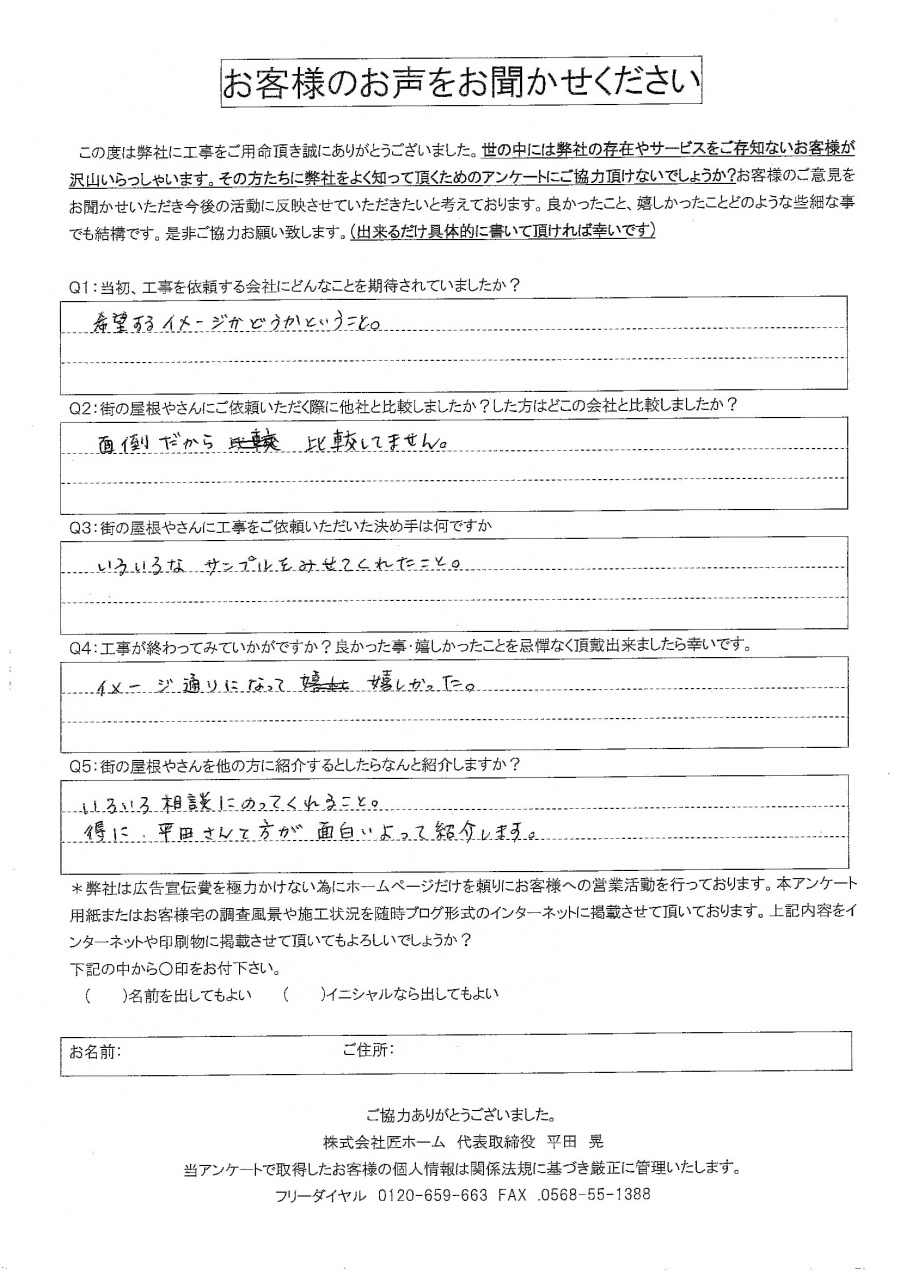 お客様のお声をお聞かせください
この度は弊社に工事をご用命頂き誠にありがとうございました。世の中には弊社の存在やサービスをご存知ないお客様が
沢山いらっしゃいます。その方たちに弊社をよく知って頂くためのアンケートにご協力頂けないでしょうか?お客様のご意見を
お聞かせいただき今後の活動に反映させていただきたいと考えております。良かったこと、嬉しかったことどのような些細な事
でも結構です。是非ご協力お願い致します。(出来るだけ具体的に書いて頂ければ幸いです)
Q1:当初、工事を依頼する会社にどんなことを期待されていましたか?
希望するイメージかどうかということ。
Q2:街の屋根やさんにご依頼いただく際に他社と比較しましたか?した方はどこの会社と比較しましたか?
面倒だから 比較 比較してません。
Q3:街の屋根やさんに工事をご依頼いただいた決め手は何ですか
いろいろな サンプルをみせてくれたこと。
Q4:工事が終わってみていかがですか?良かった事・嬉しかったことを忌憚なく頂戴出来ましたら幸いです。
イメージ通りになって 嬉しかった。
Q5:街の屋根やさんを他の方に紹介するとしたらなんと紹介しますか?
いろいろ相談にのってくれること。
得に、平田さんて方が 面白いよって紹介します。
*弊社は広告宣伝費を極力かけない為にホームページだけを頼りにお客様への営業活動を行っております。本アンケート
用紙またはお客様宅の調査風景や施工状況を随時ブログ形式のインターネットに掲載させて頂いております。上記内容をイ
ンターネットや印刷物に掲載させて頂いてもよろしいでしょうか?
下記の中から〇印をお付下さい。
( )名前を出してもよい ( )イニシャルなら出してもよい
お名前: ご住所:
ご協力ありがとうございました。
株式会社匠ホーム 代表取締役 平田 晃
当アンケートで取得したお客様の個人情報は関係法規に基づき厳正に管理いたします。
フリーダイヤル 0120-659-663 FAX .0568-55-1388